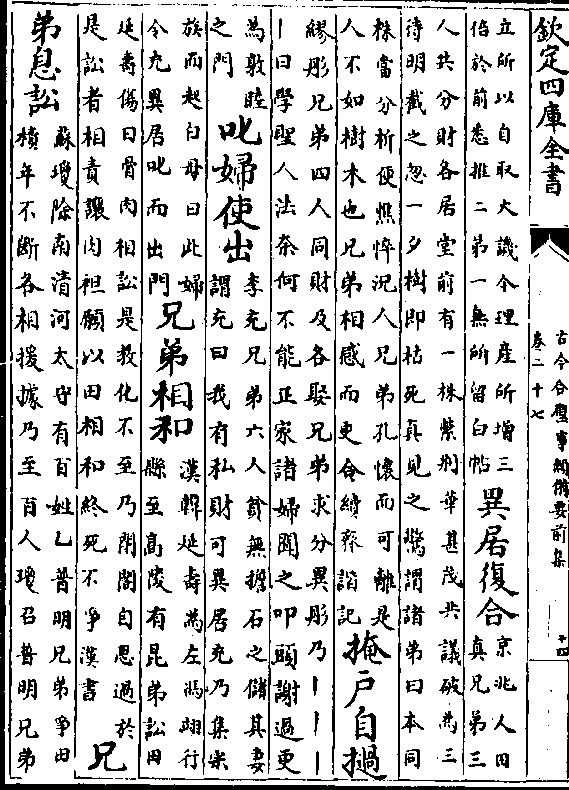 欽定四庫全書
古今合璧事類備要前集
卷二十七
十四
立所以自取大譏今理産所增三
倍於前悉推二弟一無所留白帖
異居復合
京兆人田
真兄弟三
人共分財各居堂前有一株紫荆華甚茂共議破為三
待明截之忽一夕樹即枯死真見之驚謂諸弟曰本同
株當分析便憔悴況人兄弟孔懷而可離是
人不如樹木也兄弟相感而更合續齊諧記
掩戶自撾
繆彤兄弟四人同財及各娶兄弟求分異彤乃丨丨丨
丨曰學聖人法奈何不能正家諸婦聞之叩頭謝過更
為敦睦
之門
叱婦使出
李充兄弟六人貧無擔石之儲其妻
謂充曰我有私財可異居充乃集宗
族而起白母曰此婦
令充異居叱而出門
兄弟相和
漢韓延壽為左馮翊行
縣至高陵有昆弟訟田
延壽傷曰骨肉相訟是教化不至乃閉閤自思過於
是訟者相責讓肉袒願以田相和終死不爭漢書
兄
弟息訟
蘇瓊除南清河太守有百姓乙普明兄弟爭田
積年不斷各相援據乃至百人瓊召普明兄弟